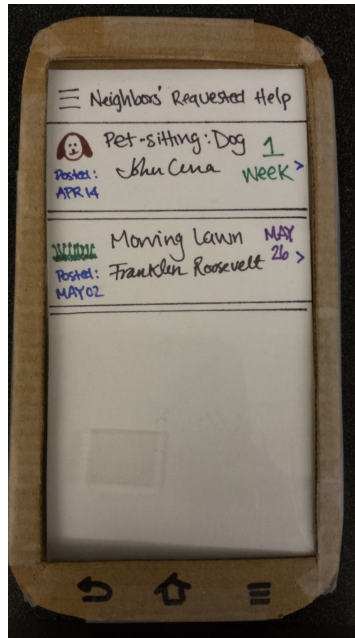 Neighbors' Requested Help
Pet-sitting: Dog
John Cena
1
Week >
Posted:
APR 14
Mowing Lawn
Franklin Roosevelt
MAY
26 >
Posted:
MAY 02